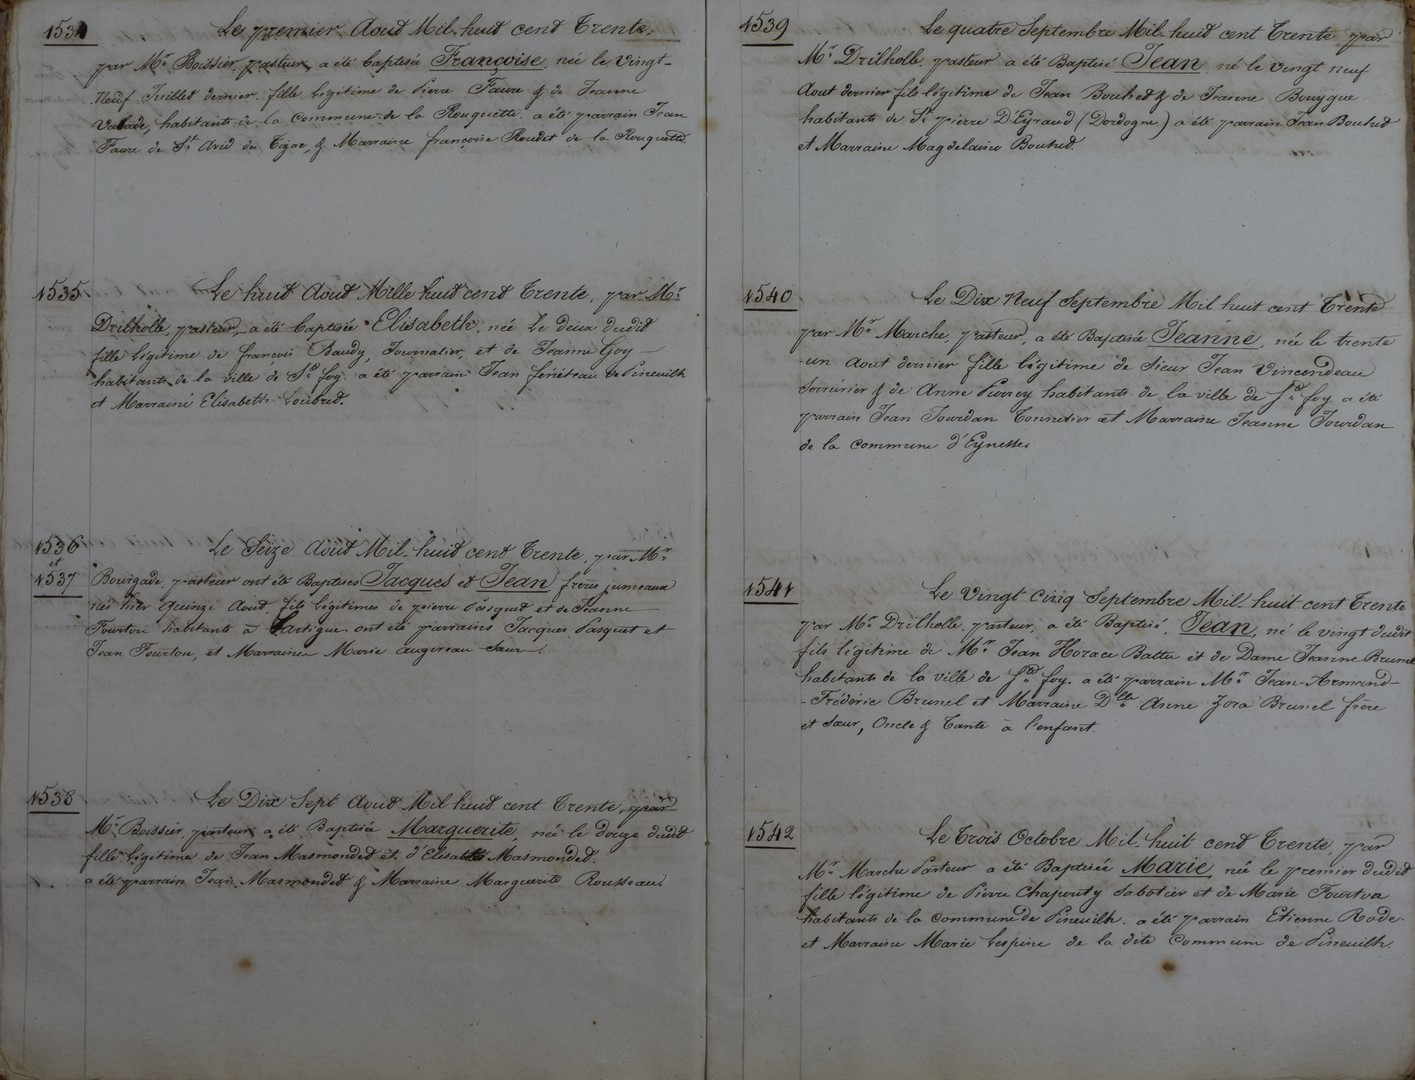 1534
Le premier Aoud Mil-huid cend Trente,
par Mr Boissier, pasteur, a été baptisée Françoise, née le Vingt-
Neuf Juilled dernier, fille légitime de Pierre Faure & de Jeanne
Valade, habitants de la Commune de la Rouquette. a été parrain Jean
Faure de St Avid du Tizac, & Marraine françoise Roudet de la Rouquette.
1535
Le huid Aoud Mille huid cend Trente, par Mr
Drilholle, pasteur, a été baptisée Elisabeth, née Le deux dudid
fille légitime de francois Baudy, Journalier, et de Jeanne Goy
habitants de la ville de Ste foy. a été parrain Jean fénéteau de Pineuilh
et Marraine Elisabeth Loubred.
1536
et
1537
Le Seize Aoud Mil-huid cend Trente, par Mr
Bourgade, pasteur ont été Baptisés Jacques et Jean frères jumeaux
nés hier quinze Aoud. fils légitimes de pierre Pasqued et de Jeanne
Tourton habitants à Lartigue ont été parrains Jacques Pasquet et
Jean Tourton, et Marraine Marie augereau
1538
Le Dix Sept Aoud Mil huid cend Trente, par
Mr Boissier, pasteur a été Baptisée Marguerite, née le douze dudid
fille légitime de Jean Masmonded et d'Elisabeth Masmonded.
a été parrain Jean Masmonded & Marraine Marguerite Rousseau.
1539
Le quatre Septembre Mil-huid cent Trente par
Mr Drilholle, pasteur a été Baptisé Jean né le vingt neuf
Aout dernier fils légitime de Jean Bouhed & de Jeanne Bouygue
habitants de St pierre D'Eyraud (Dordogne) a été parrain Jean Bouhed
et Marraine Magdelaine Bouhed.
1540
Le Dix Neuf Septembre Mil huit cent Trente
par Mr Marche, pasteur, a été Baptisée Jeanne, née le trente
un Aout dernier fille légitime de Sieur Jean Vincendeau
Serrurier & de Anne Perrey habitants de la ville de Ste foy a été
parrain Jean Jourdan Tonnelier et Marraine Jeanne Jourdan
de la commune d'Eynesse.
1541
Le Vingt Cinq Septembre Mil-huit cent Trente
par Mr Drilholle, pasteur, a été Baptisé, Jean, né le vingt dudit
fils légitime de Mr Jean Horace Battu et de Dame Jeanne Brunel
habitants de la ville de Ste foy. a été parrain Mr Jean-Armand-
-Frédéric Brunel et Marraine Dlle Anne Zora Brunel frère
et sœur, Oncle & Tante à l'enfant.
1542
Le Trois Octobre Mil-huit cend Trente, par
Mr Marche Pasteur a été Baptisée Marie, née le premier dudid
fille légitime de Pierre Chapouty Sabotier et de Marie Tourton
habitants de la Commune de Pineuilh. a été parrain Etienne Rode
et Marraine Marie Lespine de la dite Commune de Pineuilh.